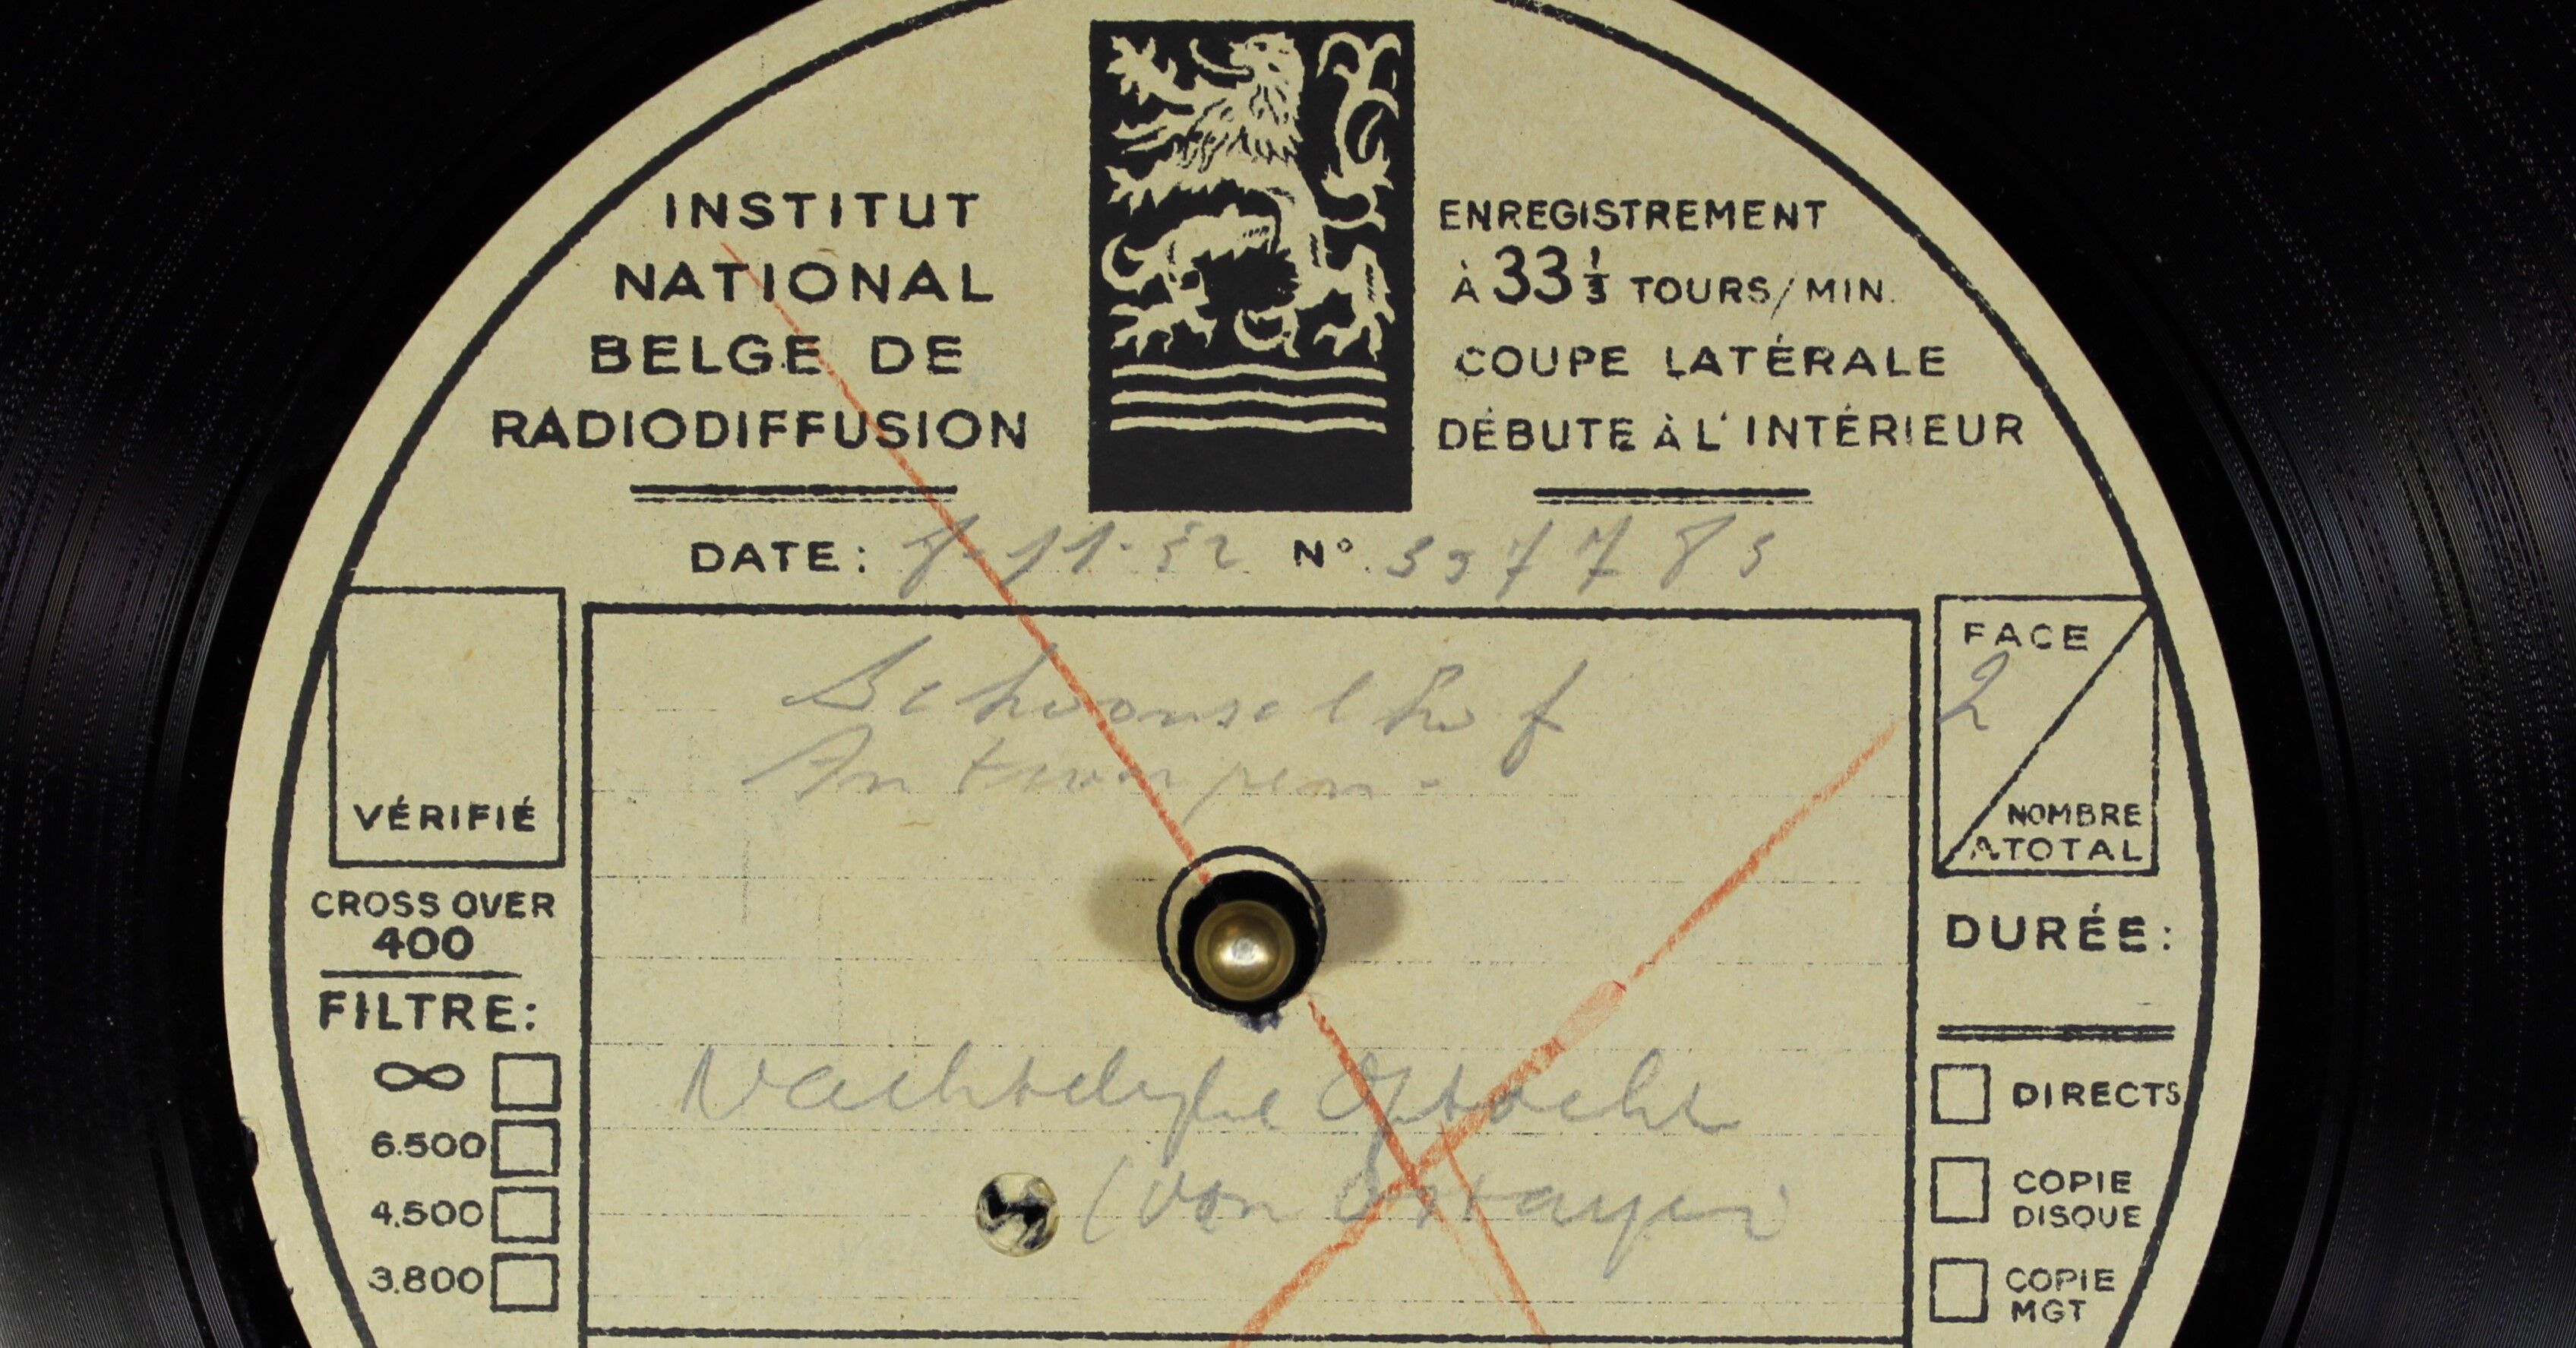 INSTITUT
NATIONAL
BELGE DE
RADIODIFFUSION
ENREGISTREMENT
À 33⅓ TOURS/MIN.
COUPE LATÉRALE
DÉBUTE À L'INTÉRIEUR
DATE: 8-11-52 N°
Schoonselhof
Antwerpen -
VÉRIFIÉ
CROSS OVER
400
FILTRE:
∞
6.500
4.500
3.800
Nachtelijke Optocht
(Van
FACE
2
NOMBRE
TOTAL
DURÉE:
DIRECTS
COPIE
DISQUE
COPIE
MGT